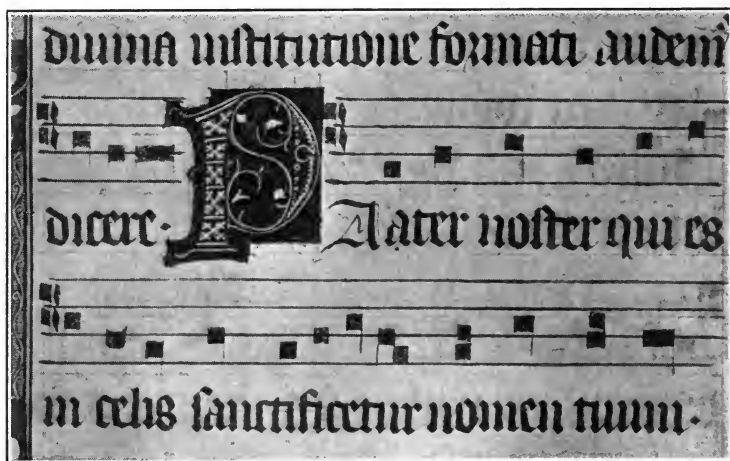 diuina institutione formati audem᷑
dicere· PAater noster qui es
in celis sanctificetur nomen tuum·